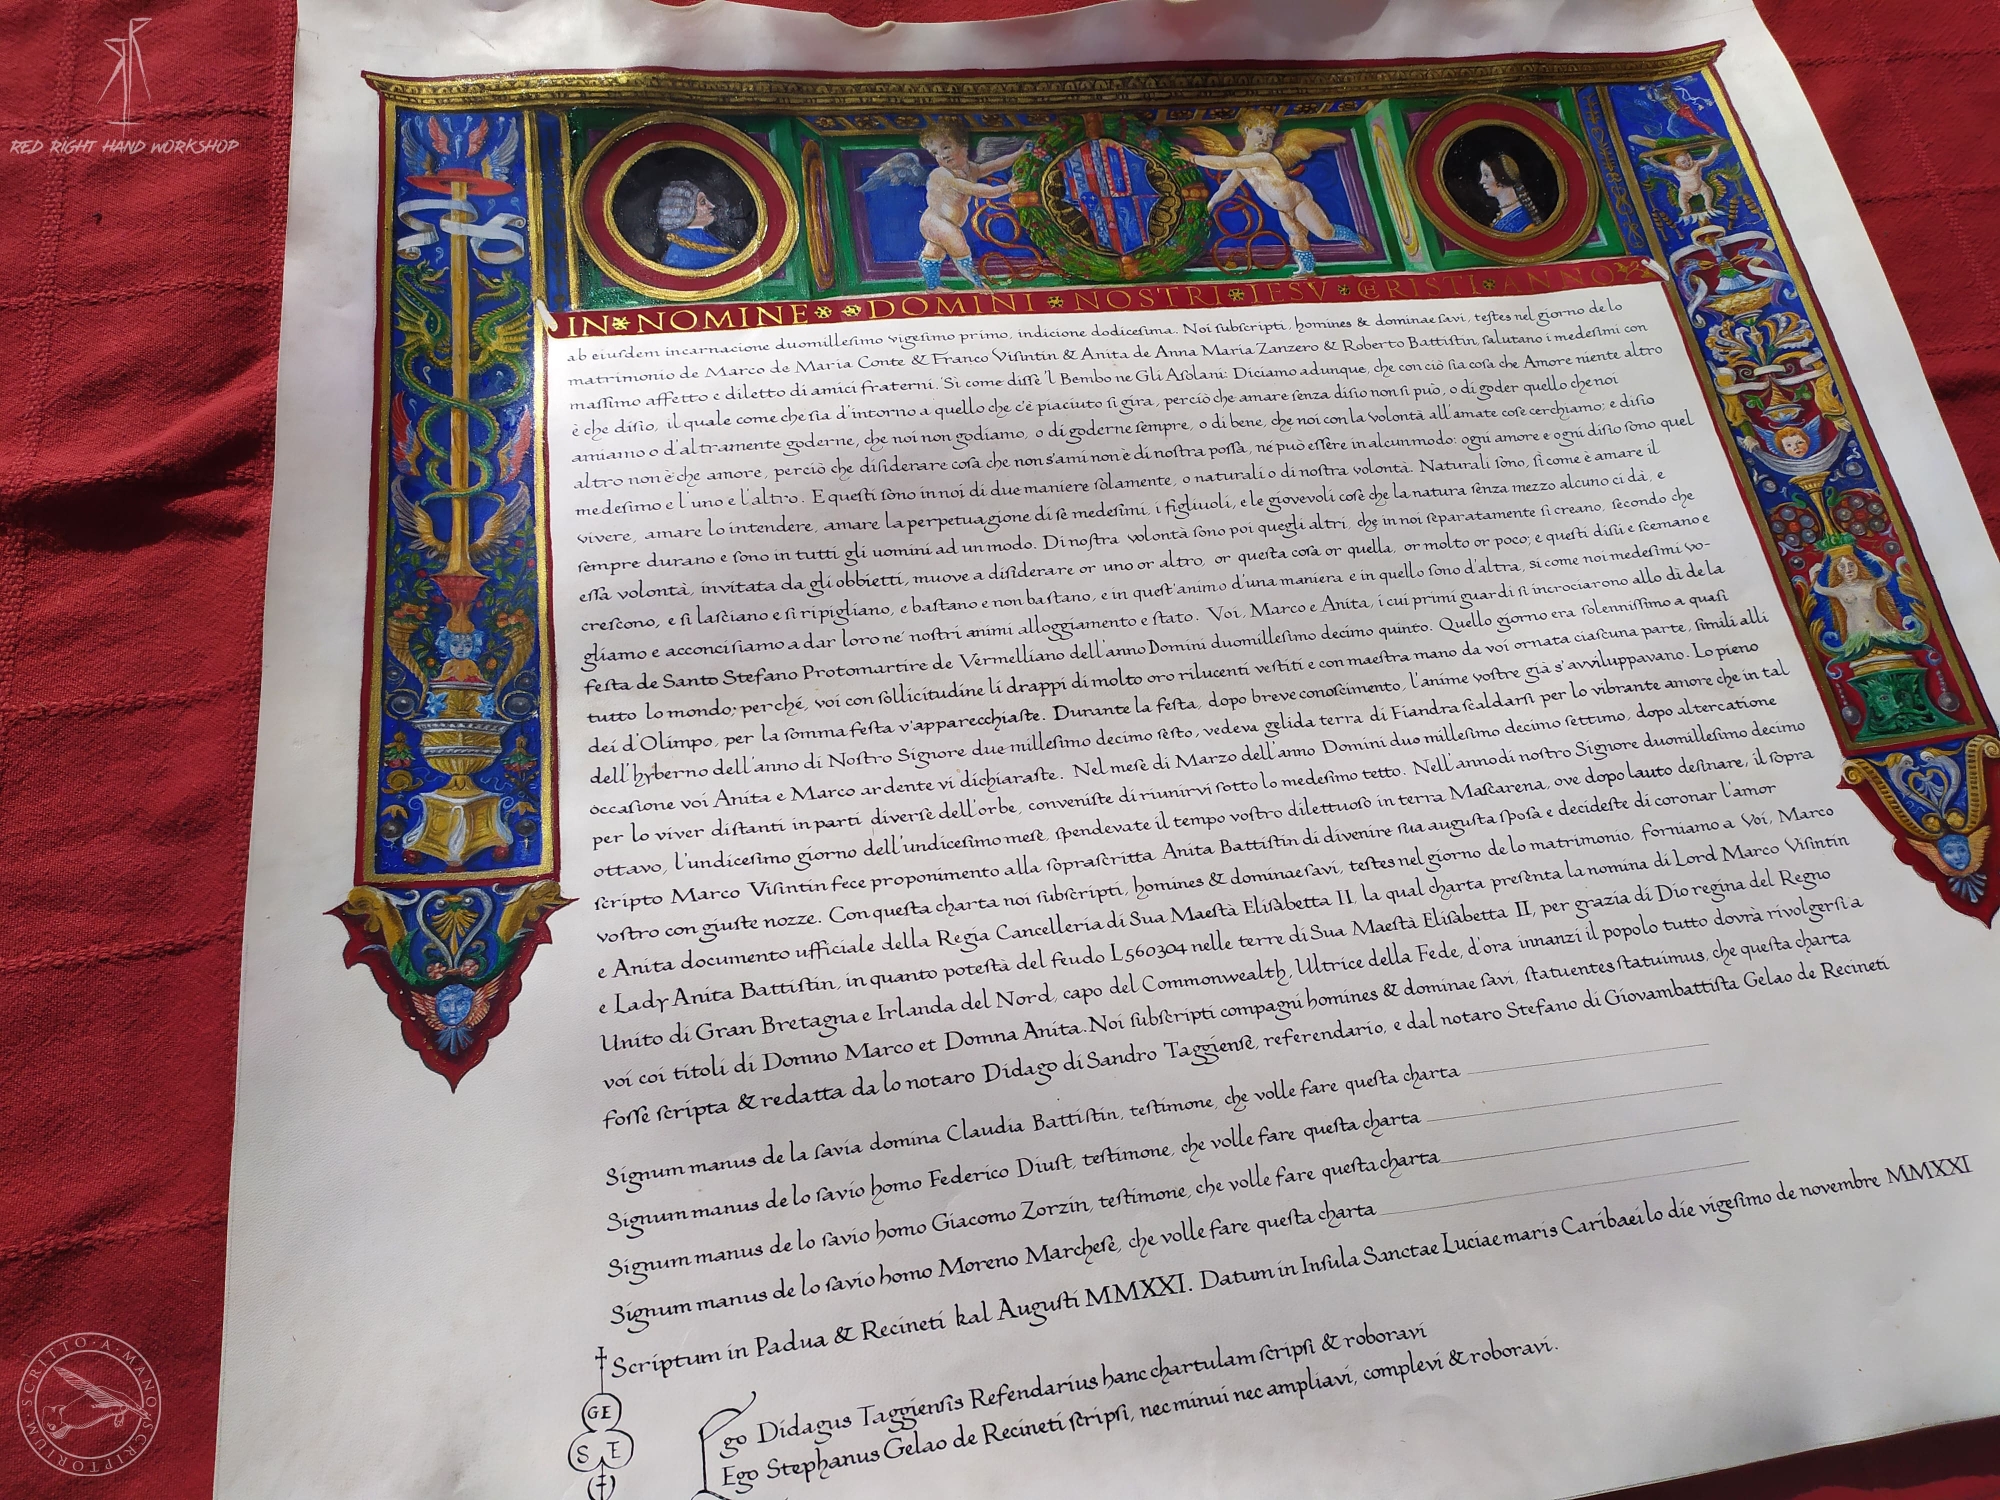 RED RIGHT HAND WORKSHOP
IN NOMINE DOMINI NOSTRI IESV CRISTI ANNO
ab eiusdem incarnacione duomillesimo vigesimo primo, indicione dodicesima. Noi subscripti, homines & dominae savi, testes nel giorno de lo
matrimonio de Marco de Maria Conte & Franco Visintin & Anita de Anna Maria Zanzero & Roberto Battistin, salutano i medesimi con
massimo affetto e diletto di amici fraterni. Si come disse 'l Bembo ne Gli Asolani: Diciamo adunque, che con ciò sia cosa che Amore niente altro
è che disio, il quale come che sia d'intorno a quello che c'è piaciuto si gira, perciò che amare senza disio non si può, o di goder quello che noi
amiamo o d'altramente goderne, che noi non godiamo, o di goderne sempre, o di bene, che noi con la volontà all'amate cose cerchiamo; e disio
altro non è che amore, perciò che disiderare cosa che non s'ami non è di nostra possa, né può essere in alcun modo: ogni amore e ogni disio sono quel
medesimo e l'uno e l'altro. E questi sono in noi di due maniere solamente, o naturali o di nostra volontà. Naturali sono, sì come è amare il
vivere, amare lo intendere, amare la perpetuagione di se medesimi, i figliuoli, e le giovevoli cose che la natura senza mezzo alcuno ci dà, e
sempre durano e sono in tutti gli uomini ad un modo. Di nostra volontà sono poi quegli altri, che in noi separatamente si creano, secondo che
essa volontà, invitata da gli obbietti, muove a disiderare or uno or altro, or questa cosa or quella, or molto or poco; e questi disii e scemano e
crescono, e si lasciano e si ripigliano, e bastano e non bastano, e in quest'animo d'una maniera e in quello sono d'altra, si come noi medesimi vo-
gliamo e acconcisiamo a dar loro ne' nostri animi alloggiamento e stato. Voi, Marco e Anita, i cui primi guardi si incrociarono allo dì de la
festa de Santo Stefano Protomartire de Vermelliano dell'anno Domini duomillesimo decimo quinto. Quello giorno era solennissimo a quasi
tutto lo mondo; perché, voi con sollicitudine li drappi di molto oro rilucenti vestiti e con maestra mano da voi ornata ciascuna parte, simili alli
dei d'Olimpo, per la somma festa v'apparecchiaste. Durante la festa, dopo breve conoscimento, l'anime vostre già s'avviluppavano. Lo pieno
dell'hyberno dell'anno di Nostro Signore due millesimo decimo sesto, vedeva gelida terra di Fiandra scaldarsi per lo vibrante amore che in tal
occasione voi Anita e Marco ardente vi dichiaraste. Nel mese di Marzo dell'anno Domini duo millesimo decimo settimo, dopo altercatione
per lo viver distanti in parti diverse dell'orbe, conveniste di riunirvi sotto lo medesimo tetto. Nell'anno di nostro Signore duomillesimo decimo
ottavo, l'undicesimo giorno dell'undicesimo mese, spendevate il tempo vostro dilettuoso in terra Mascarena, ove dopo lauto desinare, il sopra
scripto Marco Visintin fece proponimento alla soprascritta Anita Battistin di divenire sua augusta sposa e decideste di coronar l'amor
vostro con giuste nozze. Con questa charta noi subscripti, homines & dominae savi, testes nel giorno de lo matrimonio, forniamo a Voi, Marco
e Anita documento ufficiale della Regia Cancelleria di Sua Maestà Elisabetta II, la qual charta presenta la nomina di Lord Marco Visintin
e Lady Anita Battistin, in quanto potestà del feudo L560304 nelle terre di Sua Maestà Elisabetta II, per grazia di Dio regina del Regno
Unito di Gran Bretagna e Irlanda del Nord, capo del Commonwealth, Ultrice della Fede, d'ora innanzi il popolo tutto dovrà rivolgersi a
voi coi titoli di Domno Marco et Domna Anita. Noi subscripti compagni homines & dominae savi, statuentes statuimus, che questa charta
fosse scripta & redatta da lo notaro Didago di Sandro Taggiense, referendario, e dal notaro Stefano di Giovambattista Gelao de Recineti
Signum manus de la savia domina Claudia Battistin, testimone, che volle fare questa charta
Signum manus de lo savio homo Federico Diust, testimone, che volle fare questa charta
Signum manus de lo savio homo Giacomo Zorzin, testimone, che volle fare questa charta
Signum manus de lo savio homo Moreno Marchese, che volle fare questa charta
Scriptum in Padua & Recineti kal Augusti MMXXI. Datum in Insula Sanctae Luciae maris Caribaei lo die vigesimo de novembre MMXXI
Ego Didagus Taggiensis Refendarius hanc chartulam scripsi & roboravi
Ego Stephanus Gelao de Recineti scripsi, nec minui nec ampliavi, complevi & roboravi.
GE
S T
SCRITTO·A·MANO·SCRIPTORIUM